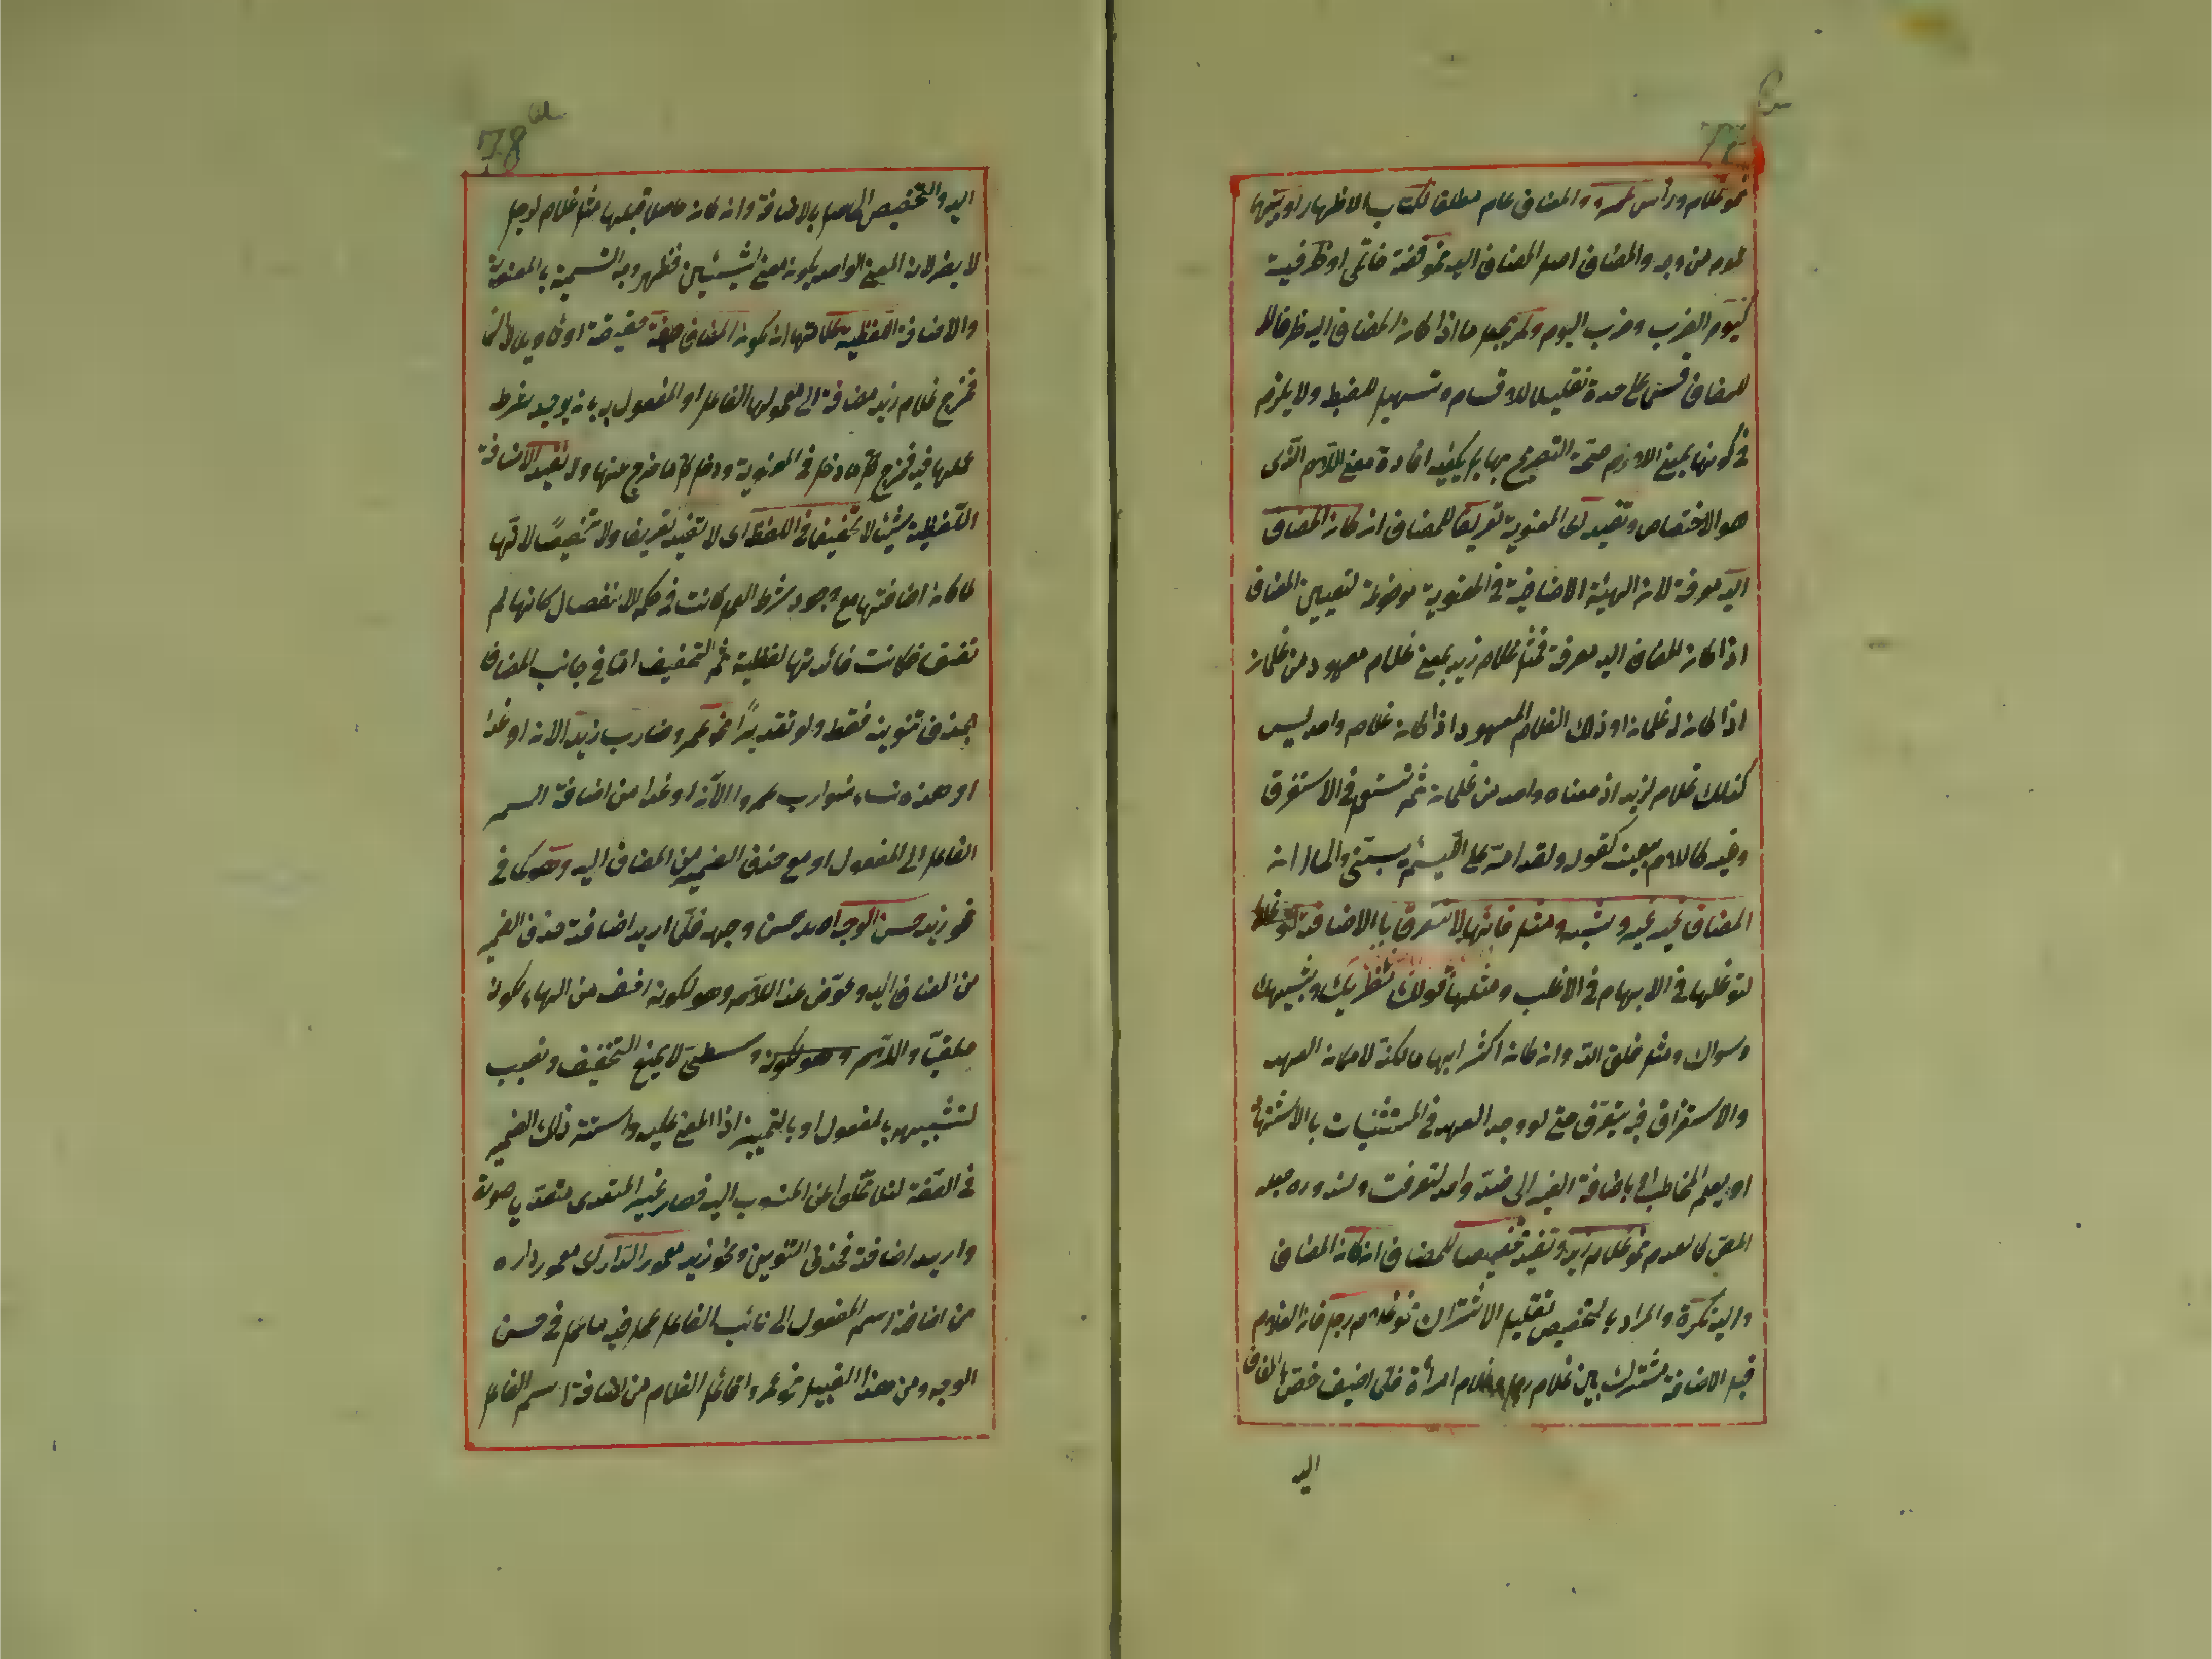 نحو غلام ورأس عمرو والمضاف عام مطلقا
عموم من وجه والمضاف اصل المضاف اليه نحو فضة خاتمى او ظرفية
كيوم الضرب وضرب اليوم ولم يجعل ما اذا كانه المضاف اليه ظرفا
للمضاف قسم على حدة تقليلا للاقسام وتسهيل للضبط ولا يلزم
فى كونها بمعنى اللام صحة التصريح بها بل يكفيه افادة معنى اللام الذى
هو الاختصاص وتفيد اى المعنوية تعريفا للمضاف انه كانه المضاف
اليه معرفة لانه الهيئة الاضافية فى المعنوية موضوعة لتعيين المضاف
اذا كانه المضاف اليه معرفة فمثل غلام زيد بمعنى غلام معهود من غلمانه
اذا كانه له غلمانه او ذلك الغلام المعهود اذا كانه غلام واحد ليس
كذلك غلام لزيد اذ معناه واحد من غلمانه ثم تستعمل فى الاستغراق
وغيره كاللام بعينه كقوله ولقد امر على اللئيم يسبنى والحال انه
المضاف غير غيره وشبهه ومثل فانها لا تتعرف بالاضافة
لتوغلها فى الابهام فى الاغلب ومثلها قولك نظيرك وشبيهك
وسواك ومثل خلق الله وانه كانه اكثر ابهاما لكنه لامكانه العهد
والاستغراق فيه يتعرف حتى لو وجد العهد فى المستثنيات بالاشتهار
او بعلم المخاطب اى باضافة الغير الى ضد واحد لتعرفت ولندوره جعله
المص كالعدم نحو غلام زيد وتفيد تخصيصا للمضاف انه كانه المضاف
واليه نكرة والمراد بالتخصيص تقليل الاشتراك نحو غلام رجل فانه الغلام
قبل الاضافة مشترك بين غلام رجل وغلام امرأة فلما اضيف خص المضاف
اليه
اليه والتخصيص الحاصل بالاضافة وانه كانه حاصلا قبلها مثل غلام لرجل
لا يضر لانه المعنى الواحد يكونه معنى لشيئين فظهر وجه التسمية بالمعنوية
والاضافة اللفظية علامتها انه يكونه المضاف صفة حقيقة او تأويلا
فخرج غلام زيد مضافة الى معمولها الفاعل او المفعول به بانه يوجد شرط
عملها فيه فخرج كل ما دخل فى المعنوية ودخل كل ما خرج عنها ولا تفيد الاضافة
اللفظية شيئا لا تخفيفا فى اللفظ اى لا تفيد تعريفا ولا تخصيصا لانها
لما كانه اضافتها مع وجود شرط العمل كانت فى حكم الانفصال كانها لم
تضف فكانت فائدتها لفظية ثم التخفيف اما فى جانب المضاف
بحذف تنوينه فقط ولو تقديرًا نحو عمرو ضارب زيد الانه او غدا
او هذه نساء ضوارب عمرو االآنه او غدا من اضافة اسم
الفاعل الى المفعول او مع حذف الضمير من المضاف اليه وهو كما فى
نحو زيد حسن الوجه اصله حسن وجهه فلما اريد اضافته حذف الضمير
من المضاف اليه وعوض عنه اللام وهو لكونه اخف من الهاء لكونه
ملفيّا واللام وهو لكونه وسطى لا يمنع التخفيف ونصب
لتشبيهه بالمفعول او بالتمييز اذا المعنى عليه واستتر ذلك الضمير
فى الصفة لئلا تخلو عن المنسوب اليه فصار غير المتعدى متعديا صورة
واريد اضافته فحذف التنوين ونحو زيد معمور الدار اى معمور داره
من اضافة اسم المفعول الى نائب الفاعل عمل فيه ما عمل فى حسن
الوجه ومن هذا القبيل نحو عمرو اقائم الغلام من اضافة اسم الفاعل